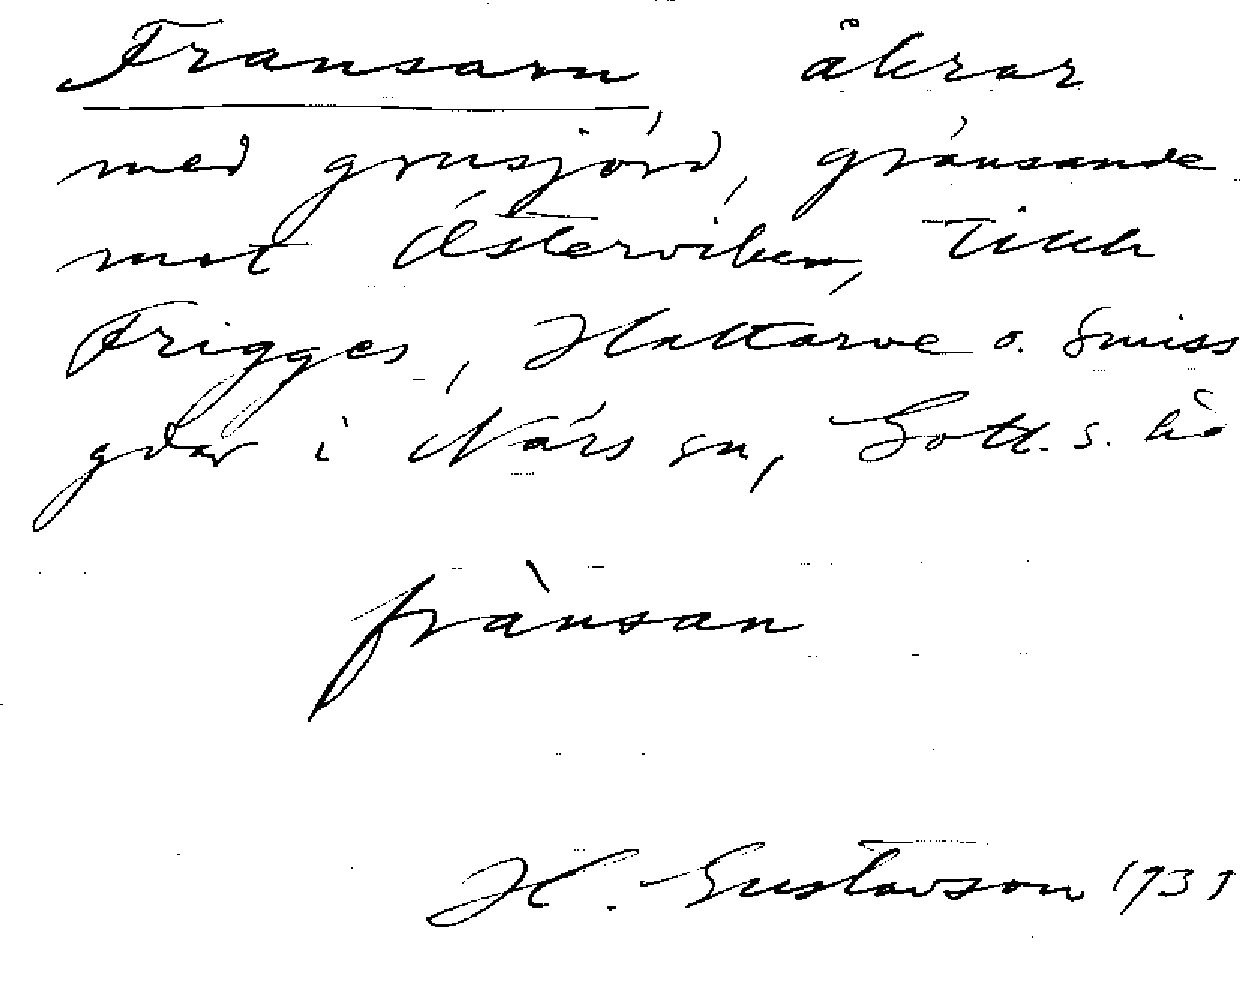 Fransarn, åkrar
med grusjörd, gränsande
mot Österviken, tillh
Frigges, Hallarve o. Smiss
gdar i När s sn, Gotl. s. hd
frànsan
H. Gustavson 1931